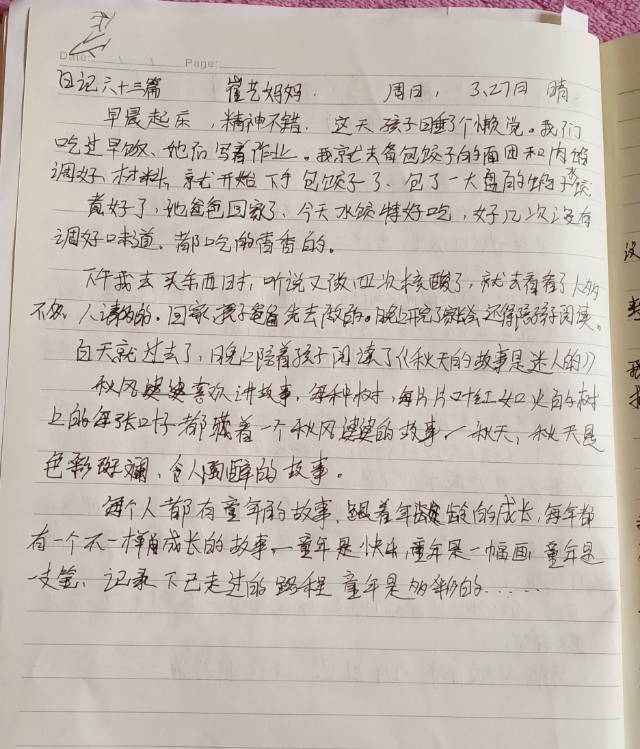 Date: Page:
日记六十三篇 崔艺妈妈. 周日, 3.27日 晴.
早晨起床,精神不错. 这天孩子睡了个懒觉。我们
吃过早饭、他在写着作业。我就去备包饺子的面团和肉馅
调好、材料,就开始下手包饺子了、包了一大盘的水饺
煮好了,他爸爸回家了、今天水饺特好吃,好几次没有
调好味道。都吃的香香的。
下午我去买东西时,听说又做四次核酸了,就去看看了人
不多,人满的。回家孩子爸爸先去做的。晚上开完了家长会还得陪孩子阅读。
白天就过去了,晚上陪着孩子阅读了《秋天的故事是迷人的》
秋风婆婆喜欢讲故事,每种树,每片片叶红如火的树
上的每张叶子都藏着一个秋风婆婆的故事。秋天,秋天是
色彩斑斓、令人陶醉的故事。
每个人都有童年的故事,跟着年龄的成长,每年都
有一个不一样的成长的故事。童年是快乐,童年是一幅画,童年是
一支笔、记录下已走过的路程 童年是多彩的......